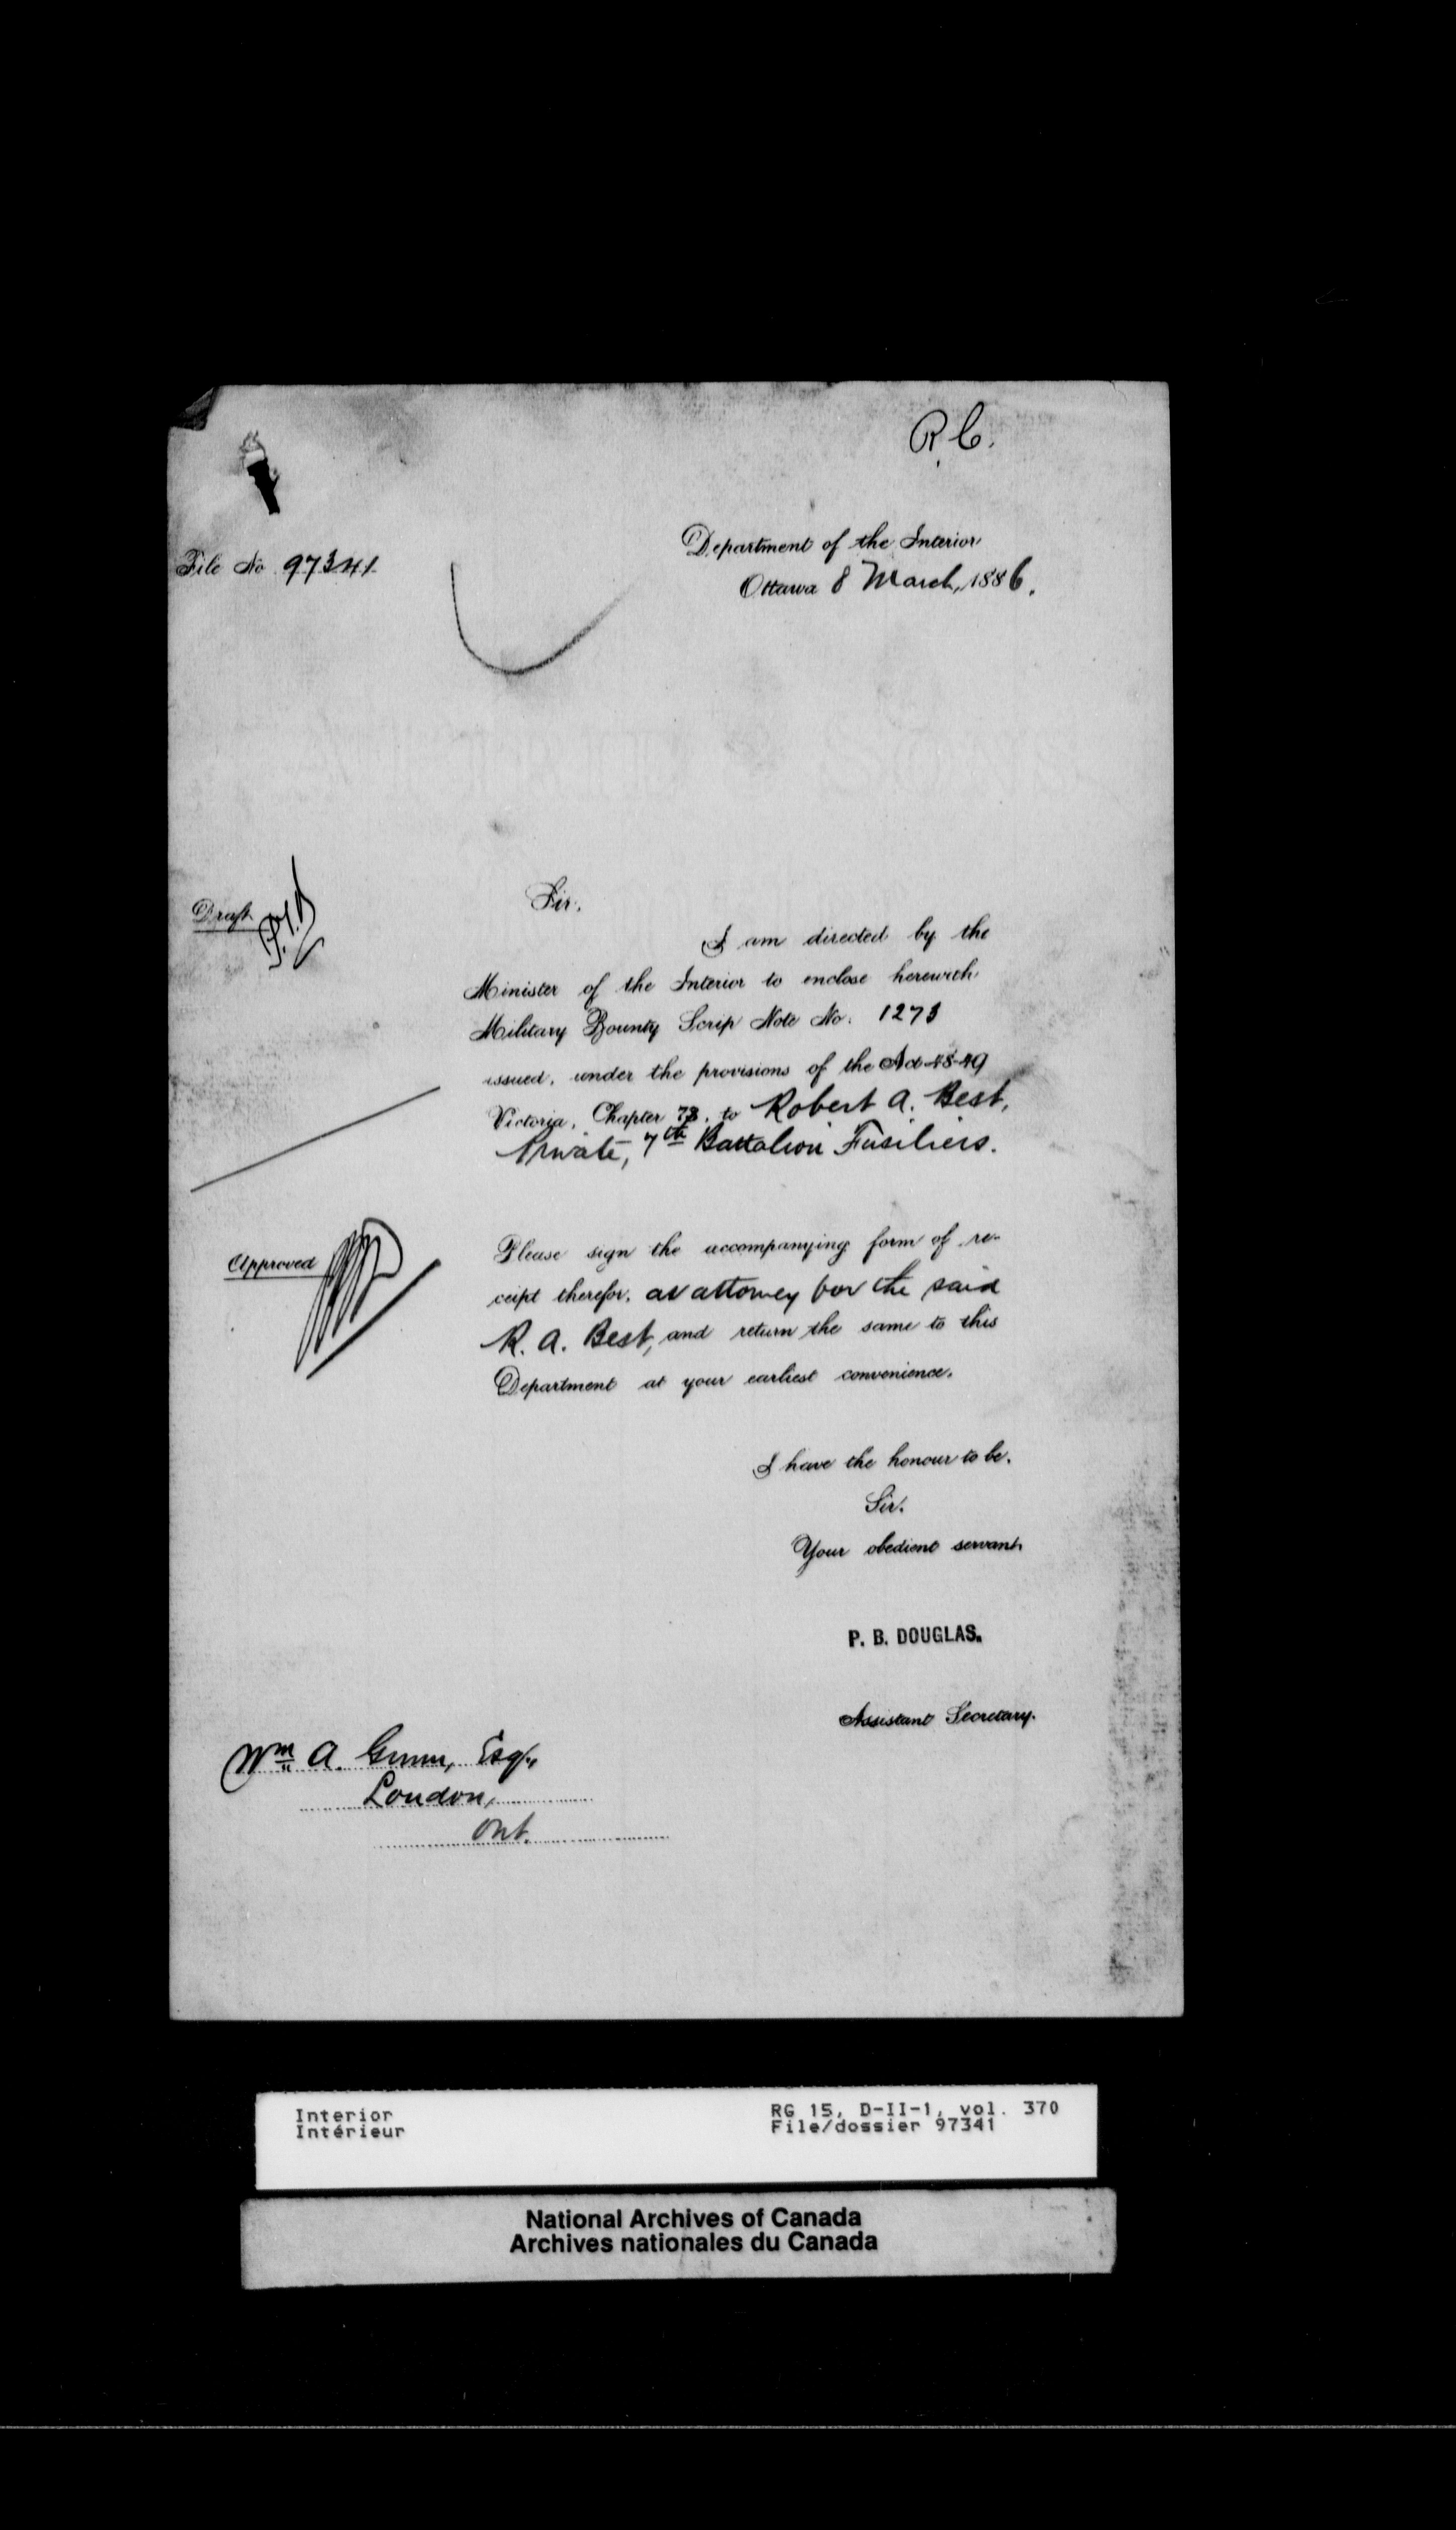 R.C.
File No 97341
Department of the Interior
Ottawa 8 March, 1886.
Draft
Sir,
I am directed by the
Minister of the Interior to enclose herewith
Military Bounty Scrip Note No. 1273
issued, under the provisions of the Act 48-49
Victoria, Chapter 73, to Robert A. Best,
Private, 7th Battalion Fusiliers.
Approved
Please sign the accompanying form of re-
ceipt therefor, as attorney for the said
R. A. Best, and return the same to this
Department at your earliest convenience.
I have the honour to be,
Sir,
Your obedient servant,
P. B. DOUGLAS.
Assistant Secretary.
Wm A. Gunn, Esq.,
London,
Ont.
Interior
Intérieur
RG 15, D-II-1, vol. 370
File/dossier 97341
National Archives of Canada
Archives nationales du Canada